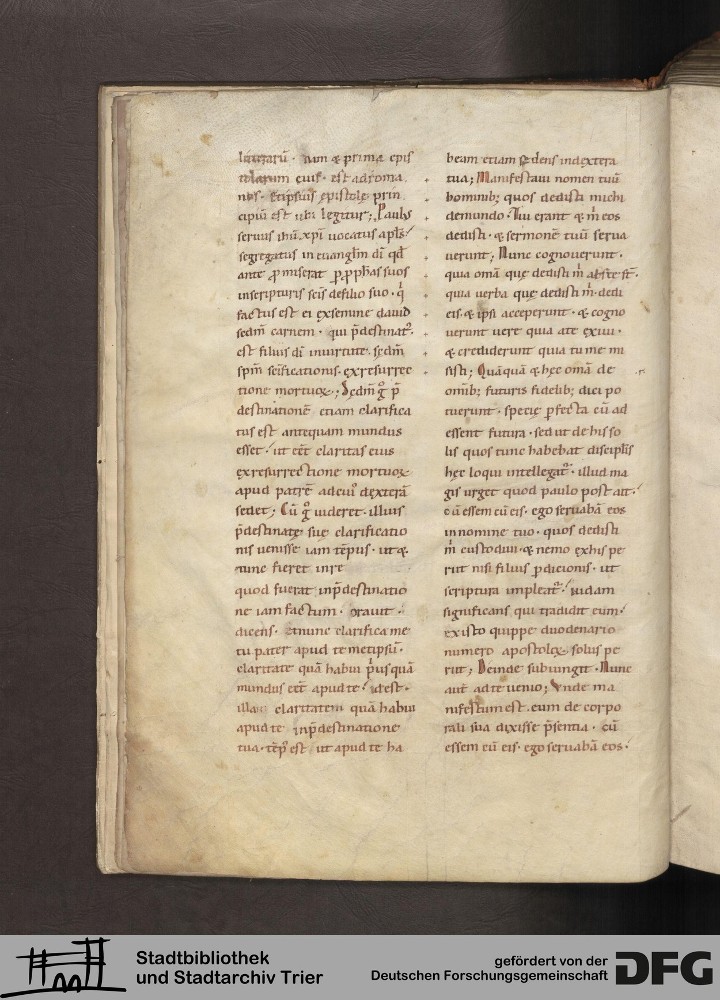 litterarū · nam & prima epis
tolarum eius · est ad roma
nos · & ipsius epistolę prin
cipiū est ubi legitur; Paulus
seruus ihū xpī uocatus apl̄s
segregatus in euangłm dī qđ
ante ꝓmiserat ꝑ ꝓphas suos
in scripturis scīs de filio suo · q̇
factus est ei ex semine dauid
sedm̄ carnem · qui p̄destinat᷒
est filius dī in uirtute · sędm̄
spm̄ scīficationis · ex resurrec
tione mortuoꝝ; Sędm̄ g̊ p̄
destinationē etiam clarifica
tus est antequam mundus
esset · ut eēt claritas eius
ex resurrectione mortuoꝝ
apud patrē ad cui᷒ dexterā
sedet; Cū g̊ uideret · illius
p̄destinatę suę clarificatio
nis uenisse iam tēpus · ut &
nunc fieret in re
quod fuerat in p̄destinatio
ne iam factum · orauit ·
dicens · et nunc clarifica me
tu pater apud temetipsū ·
claritate quā habui p̄usquā
mundus eēt apud te · id est ·
illam claritatem quā habui
apud te in p̄destinatione
tua · tēp᷒ est ut apud te ha
beam etiam sedens in dextera
tua; Manifestaui nomen tuū
hominib; quos dedisti michi
de mundo · Tui erant & m̄ eos
dedisti · & sermonē tuū serua
uerunt; Nunc cognouerunt ·
quia omā quę dedisti m̄ abs te st̄ ·
quia uerba quę dedisti m̄ · dedi
eis · & ipsi acceperunt · & cogno
uerunt uere quia a te exiui ·
& crediderunt quia tu me mi
sisti; Quāquā & hęc omā de
omīb; futuris fidelib; dici po
tuerunt · specie ꝑfecta cū ad
essent futura · sed ut de his so
lis quos tunc habebat discipĺis
hęc loqui intellegat᷒ · illud ma
gis urget quod paulo post ait ·
cū essem cū eis · ego seruabā eos
in nomine tuo · quos dedisti
m̄ custodiui · & nemo ex his pe
riit nisi filius ꝑdicionis · ut
scriptura impleat᷒ · iudam
significans qui tradidit eum ·
ex isto quippe duodenario
numero apostoloꝝ solus pe
riit; Deinde subiungit · Nunc
aut̄ ad te uenio; Vnde ma
nifestum est · eum de corpo
rali sua dixisse p̄sentia · cū
essem cū eis · ego seruabā eos ·
Stadtbibliothek
und Stadtarchiv Trier
gefördert von der
Deutschen Forschungsgemeinschaft
DFG